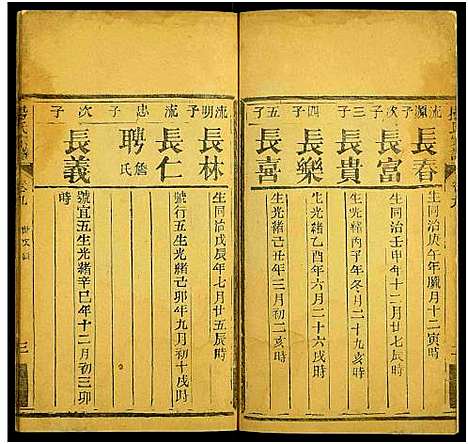 流源子
長春
生同治庚午年臘月十二寅時
次子
長富
生同治壬申年十二月十六辰時
三子
長貴
生光緒丙子年冬月二十九亥時
四子
長樂
生光緒乙酉年六月二十六戌時
五子
長喜
生光緒辛丑年三月初二亥時
流明子
長林
生同治戊辰年七月廿五辰時
流忠子
長仁
號行五生光緒己卯年九月初十戌時
聘詹氏
次子
長義
號宜五生光緒辛巳年十二月初三卯
時
卷九
三